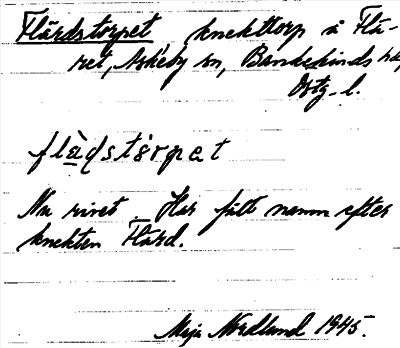 Flärdstorpet knekttorp å Flä-
ret, Askeby sn, Bankekinds hd,
Östg. l.
flädstòrpet
Nu rivet. Har fått namn efter
knekten Flärd.
Maja Nordlund 1945.